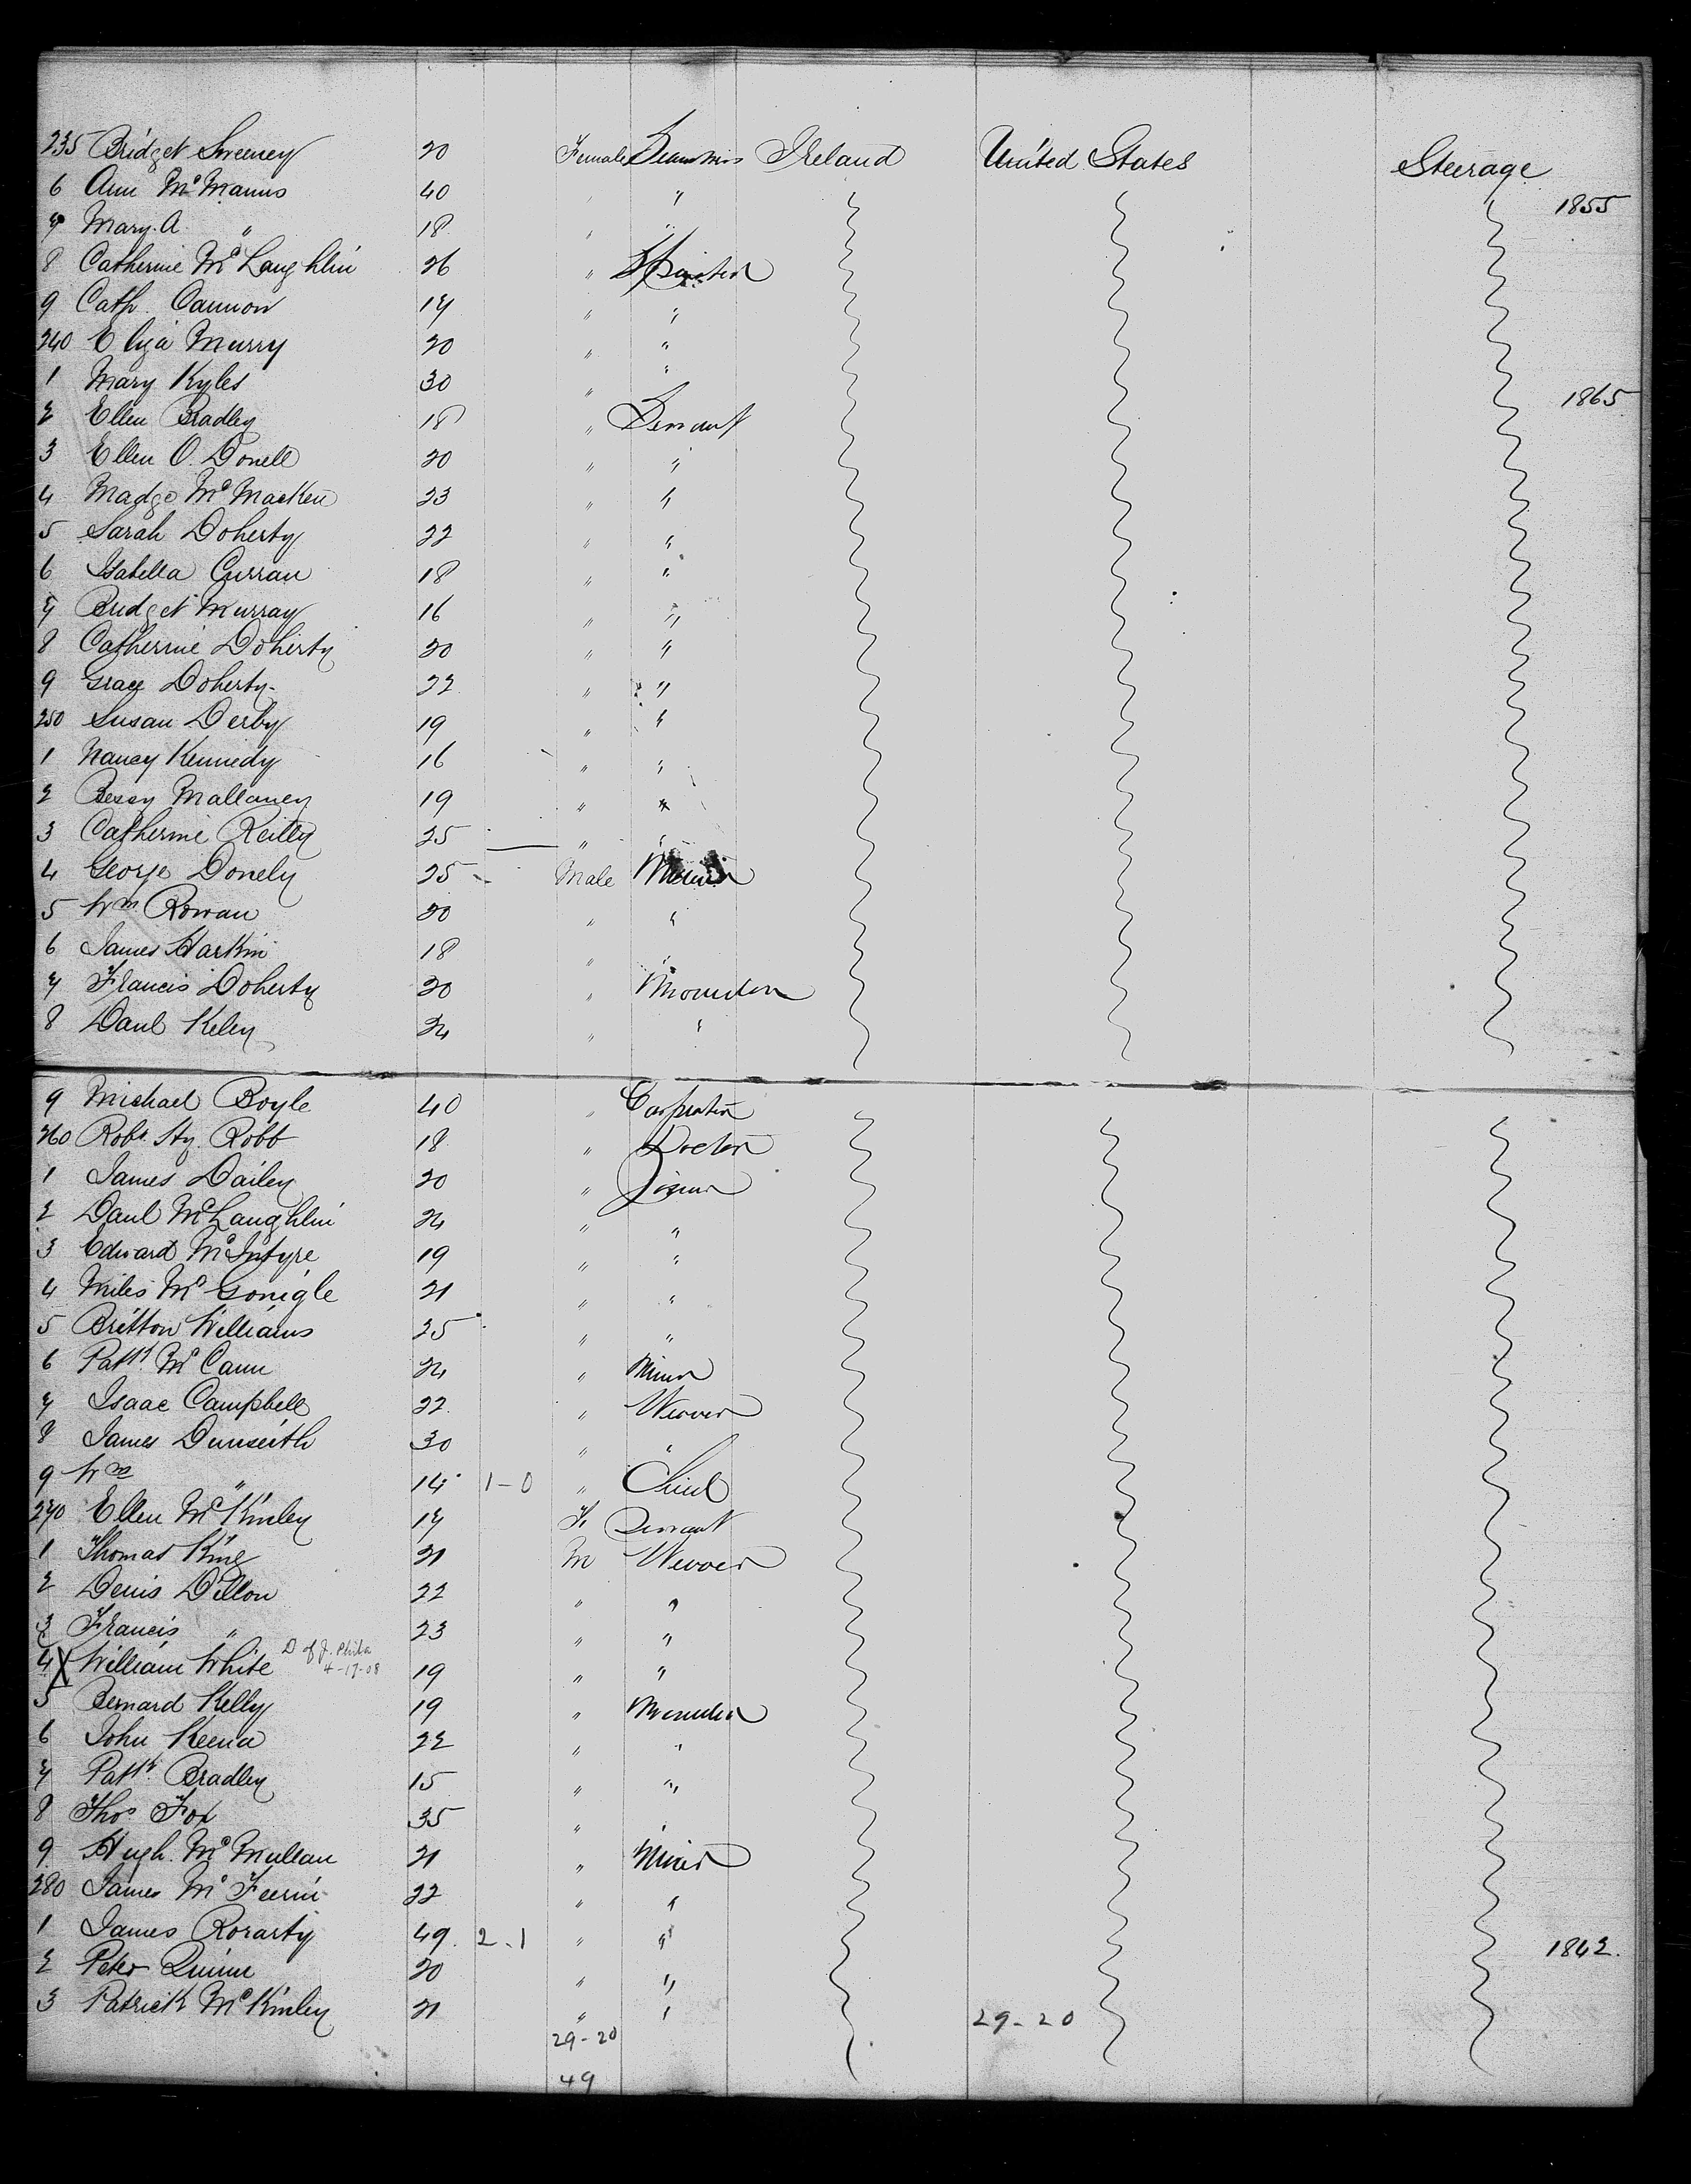 235 Bridget Sweeney 20 Female Seamtriss Ireland United States Steerage
6 Ann McManus 40 " " 1855
7 Mary A. " 18 " "
8 Catherine McLaughlin 26 " Spinster
9 Cath. Cannon 17 " "
240 Eliza Murry 20 " "
1 Mary Kyles 30 " " 1865
2 Ellen Bradley 18 " Servant
3 Ellen O. Donell 20 " "
4 Madge McMacken 23 " "
5 Sarah Doherty 22 " "
6 Isabella Curran 18 " "
7 Bridget Murray 16 " "
8 Catherine Doherty 20 " "
9 Grace Doherty 22 " "
250 Susan Derby 19 " "
1 Nancy Kennedy 16 " "
2 Bessy Mallaney 19 " "
3 Catherine Reilly 25 " "
4 George Donely 25 Male
5 Wm Rowan 20 " "
6 James Harkin 18 " "
7 Francis Doherty 20 " Moulder
8 Danl Keley 24 " "
9 Michael Boyle 40 " Carpenter
260 Robt Hy. Robb 18 " Doctor
1 James Dailey 20 " Joiner
2 Danl McLaughlin 24 " "
3 Edward McIntyre 19 " "
4 Miles McGonigle 21 " "
5 Britton Williams 25 " "
6 Pattk McCann 24 " Miner
7 Isaac Campbell 22 " Weaver
8 James Dunseith 30 " "
9 Wm " 14 1-0 " Child
270 Ellen McKinley 17 F Servant
1 Thomas King 21 M Weaver
2 Denis Dillon 22 " "
3 Francis " 23 " "
4 X William White D of J. Phila 4-17-08 19 " "
5 Bernard Kelly 19 " Moulder
6 John Keena 22 " "
7 Pattk Bradley 15 " "
8 Thos Fox 35 " "
9 Hugh McMullan 21 " Miner
280 James McFeerin 22 " "
1 James Rorarty 49 2-1 " " 1842.
2 Peter Quinn 20 " "
3 Patrick McKinley 21 " "
29-20 29-20
49